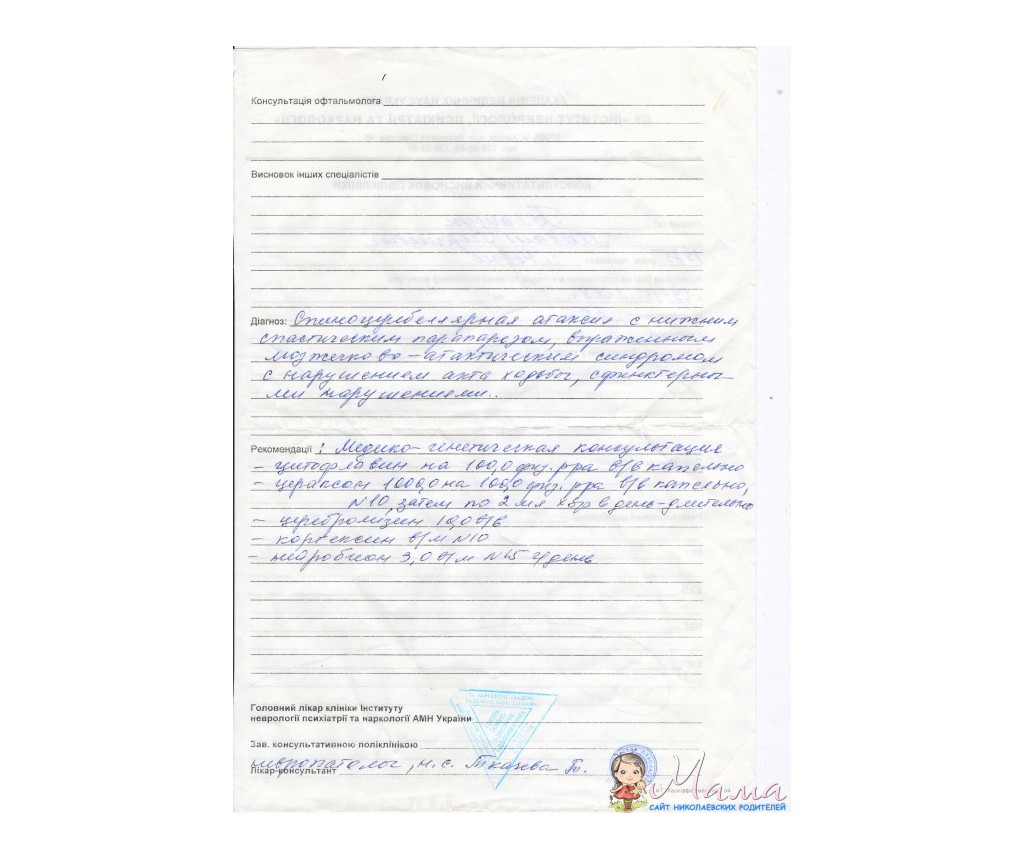 Консультація офтальмолога
Висновок інших спеціалістів
Діагноз: Спиноцеребеллярная атаксия с нижним
спастическим парапарезом, выраженным
мозжечково-атактическим синдромом
с нарушением акта ходьбы, сфинктерны-
ми нарушениями..
Рекомендації: Медико-генетическая консультация
- цитофлавин на 100,0 физ. р-ра в/в капельно
- цераксон 1000,0 на 100,0 физ. р-ра в/в капельно,
N10, затем по 2 мл х 3р в день - длительно
- церебролизин 10,0 в/в
- кортексин в/м N10
- нейробион 3,0 в/м N15 ч/день
Головний лікар клініки Інституту
неврології психіатрії та наркології АМН України
Зав. консультативною поліклінікою
невропатолог, н. с. Ткачева Т.
Лікар-консультант
Мама
САЙТ НИКОЛАЕВСКИХ РОДИТЕЛЕЙ